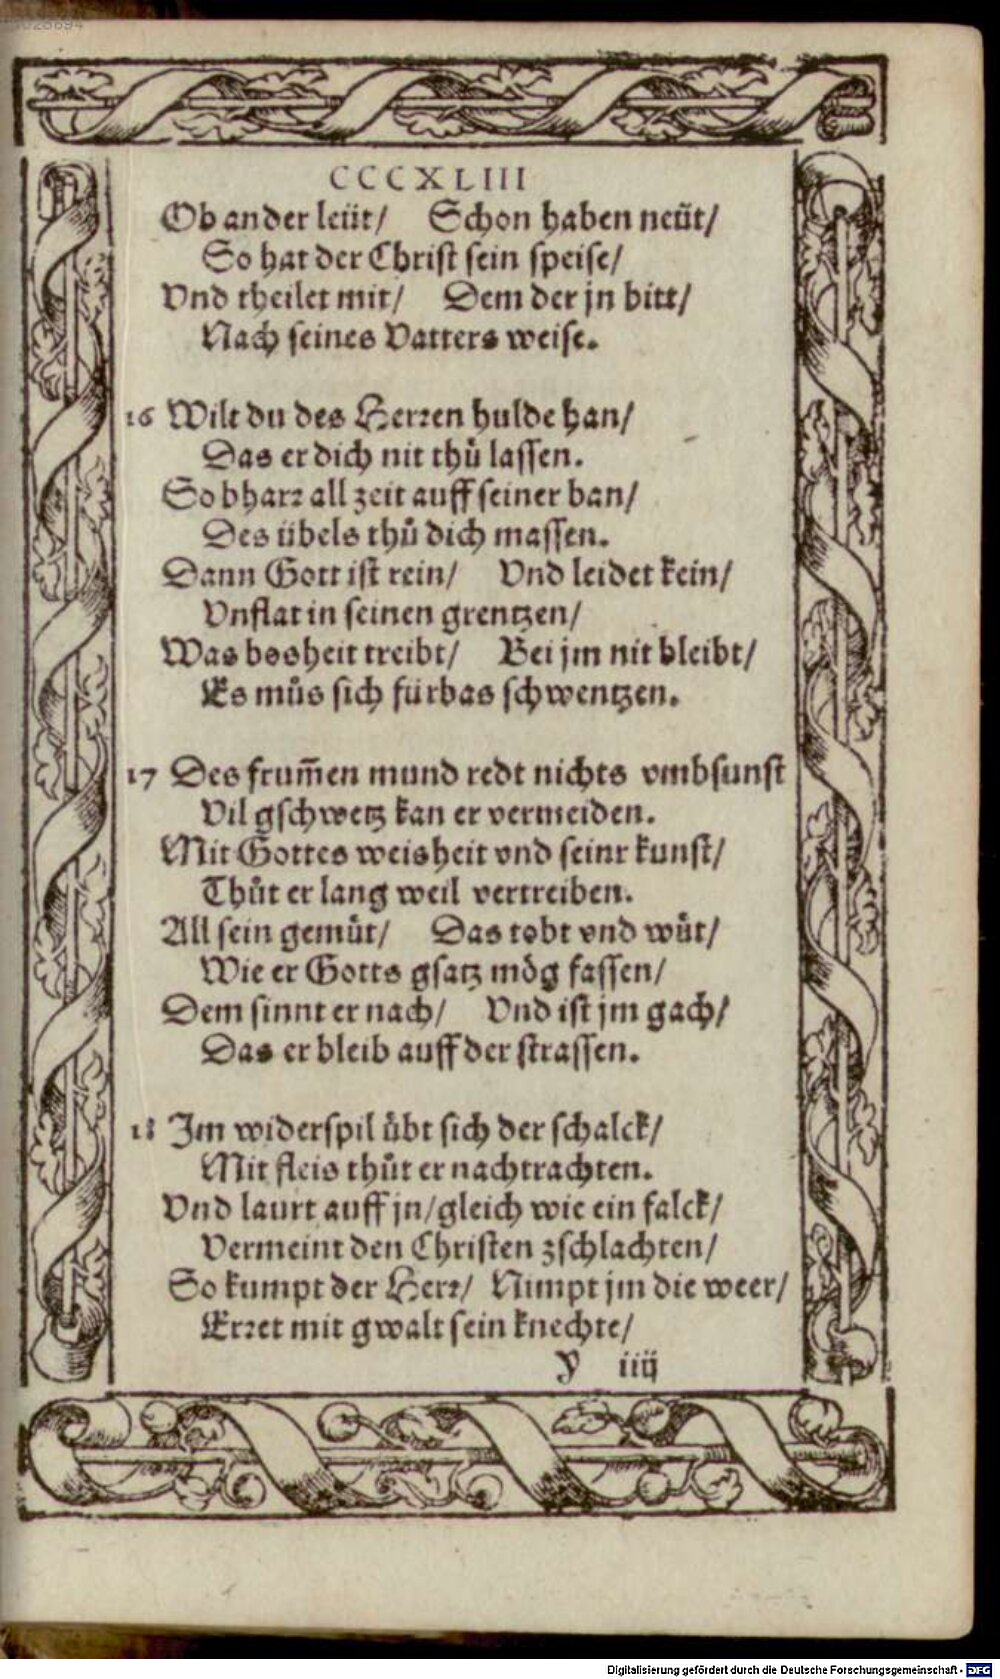 CCCXLIII
Ob ander leüt/ Schon haben neüt/
So hat der Christ sein speise/
Vnd theilet mit/ Dem der jn bitt/
Nach seines Vatters weise.
16 Wilt du des Herren hulde han/
Das er dich nit thůlassen.
So bharr all zeit auff seiner ban/
Des übels thů dich massen.
Dann Gott ist rein/ Vnd leidet kein/
Vnflat in seinen grentzen/
Was bosheit treibt/ Bei jm nit bleibt/
Es můs sich fürbas schwentzen.
17 Des frum̃en mund redt nichts vmbsunst
Vil gschwetz kan er vermeiden.
Mit Gottes weisheit vnd seinr kunst/
Thůt er lang weil vertreiben.
All sein gemüt/ Das tobt vnd wüt/
Wie er Gotts gsatz mög fassen/
Dem sinnt er nach/ Vnd ist jm gach/
Das er bleib auff der strassen.
18 Im widerspil übt sich der schalck/
Mit fleis thůt er nachtrachten.
Vnd laurt auff jn/ gleich wie ein falck/
Vermeint den Christen zschlachten/
So kumpt der Herr/ Nimpt jm die weer/
Erret mit gwalt sein knechte/
y iiij
Digitalisierung gefördert durch die Deutsche Forschungsgemeinschaft - DFG